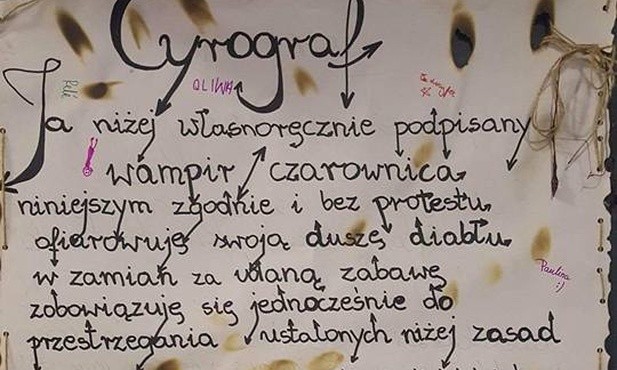 Cyrograf
OLIWA
Ja niżej własnoręcznie podpisany
wampir / czarownica,
niniejszym zgodnie i bez protestu,
ofiarowuję swoją duszę diabłu,
w zamian za udaną zabawę
Paulina :)
zobowiązuję się jednocześnie do
przestrzegania ustalonych niżej zasad